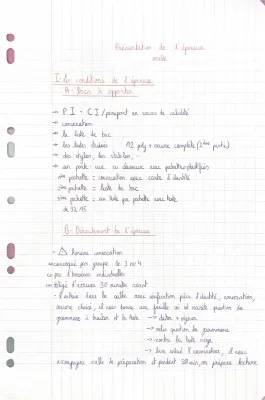 Présentation de l'épreuve
orale
I Les conditions de l'épreuve
A- Docs à apporter
→ P.I - CI / passeport en cours de validité
→ convocation
→ la liste de bac
→ les textes étudiés 12 poly + œuvre complète (2ème partie)
→ des stylos, des
→ un porte vue ou classeur avec pochettes plastifiées
1ère pochette = convocation avec carte d'identité
2ème pochette = liste de bac
3ème pochette = un texte par pochette avec texte
B- Déroulement de l'épreuve
→ ⚠ horaire convocation
convoqué par groupe de 3 ou 4
pas d'horaires individuelles
obligé d'arriver 30 minutes avant
→ entrée dans la salle avec vérification pièce d'identité, convocation,
œuvre choisie, il vous donne une feuille où il existe question de
grammaire à traiter et le texte → dater + signer
→ relire question de grammaire
→ contre le texte
→ l'examinateur, il vous
accompagne salle de préparation et pendant 30 min, on prépare lecture